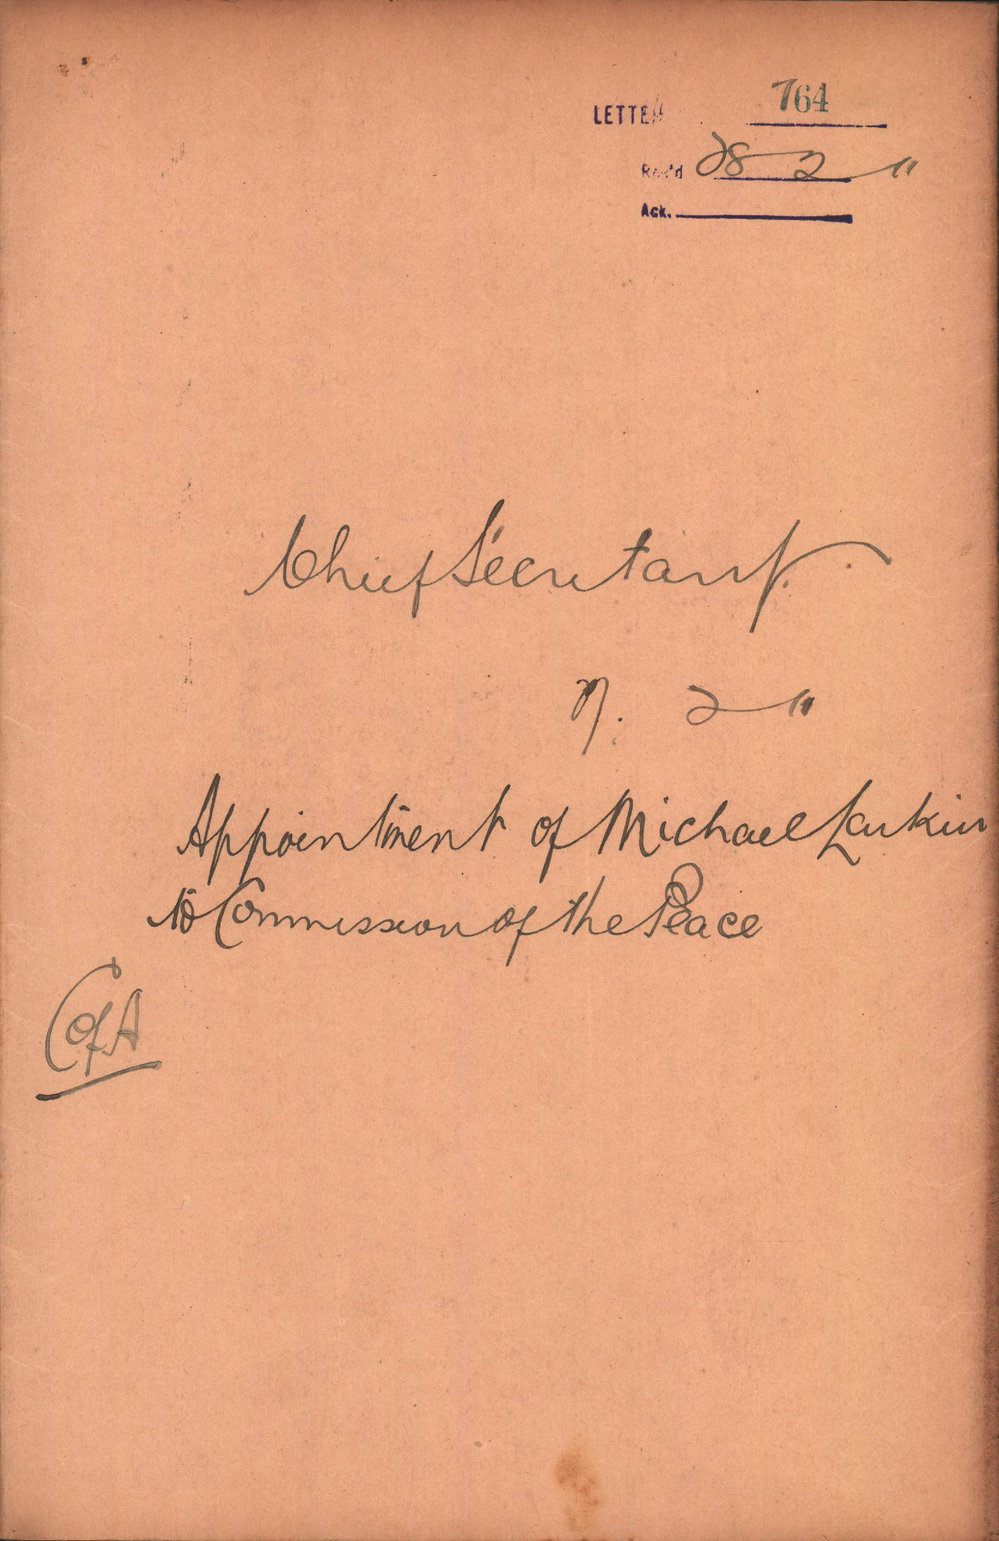 LETTER 764
Rec'd 28 2 11
Ack.
Chief Secretary.
27. 2 11
Appointment of Michael Larkin
to Commission of the Peace
C of A